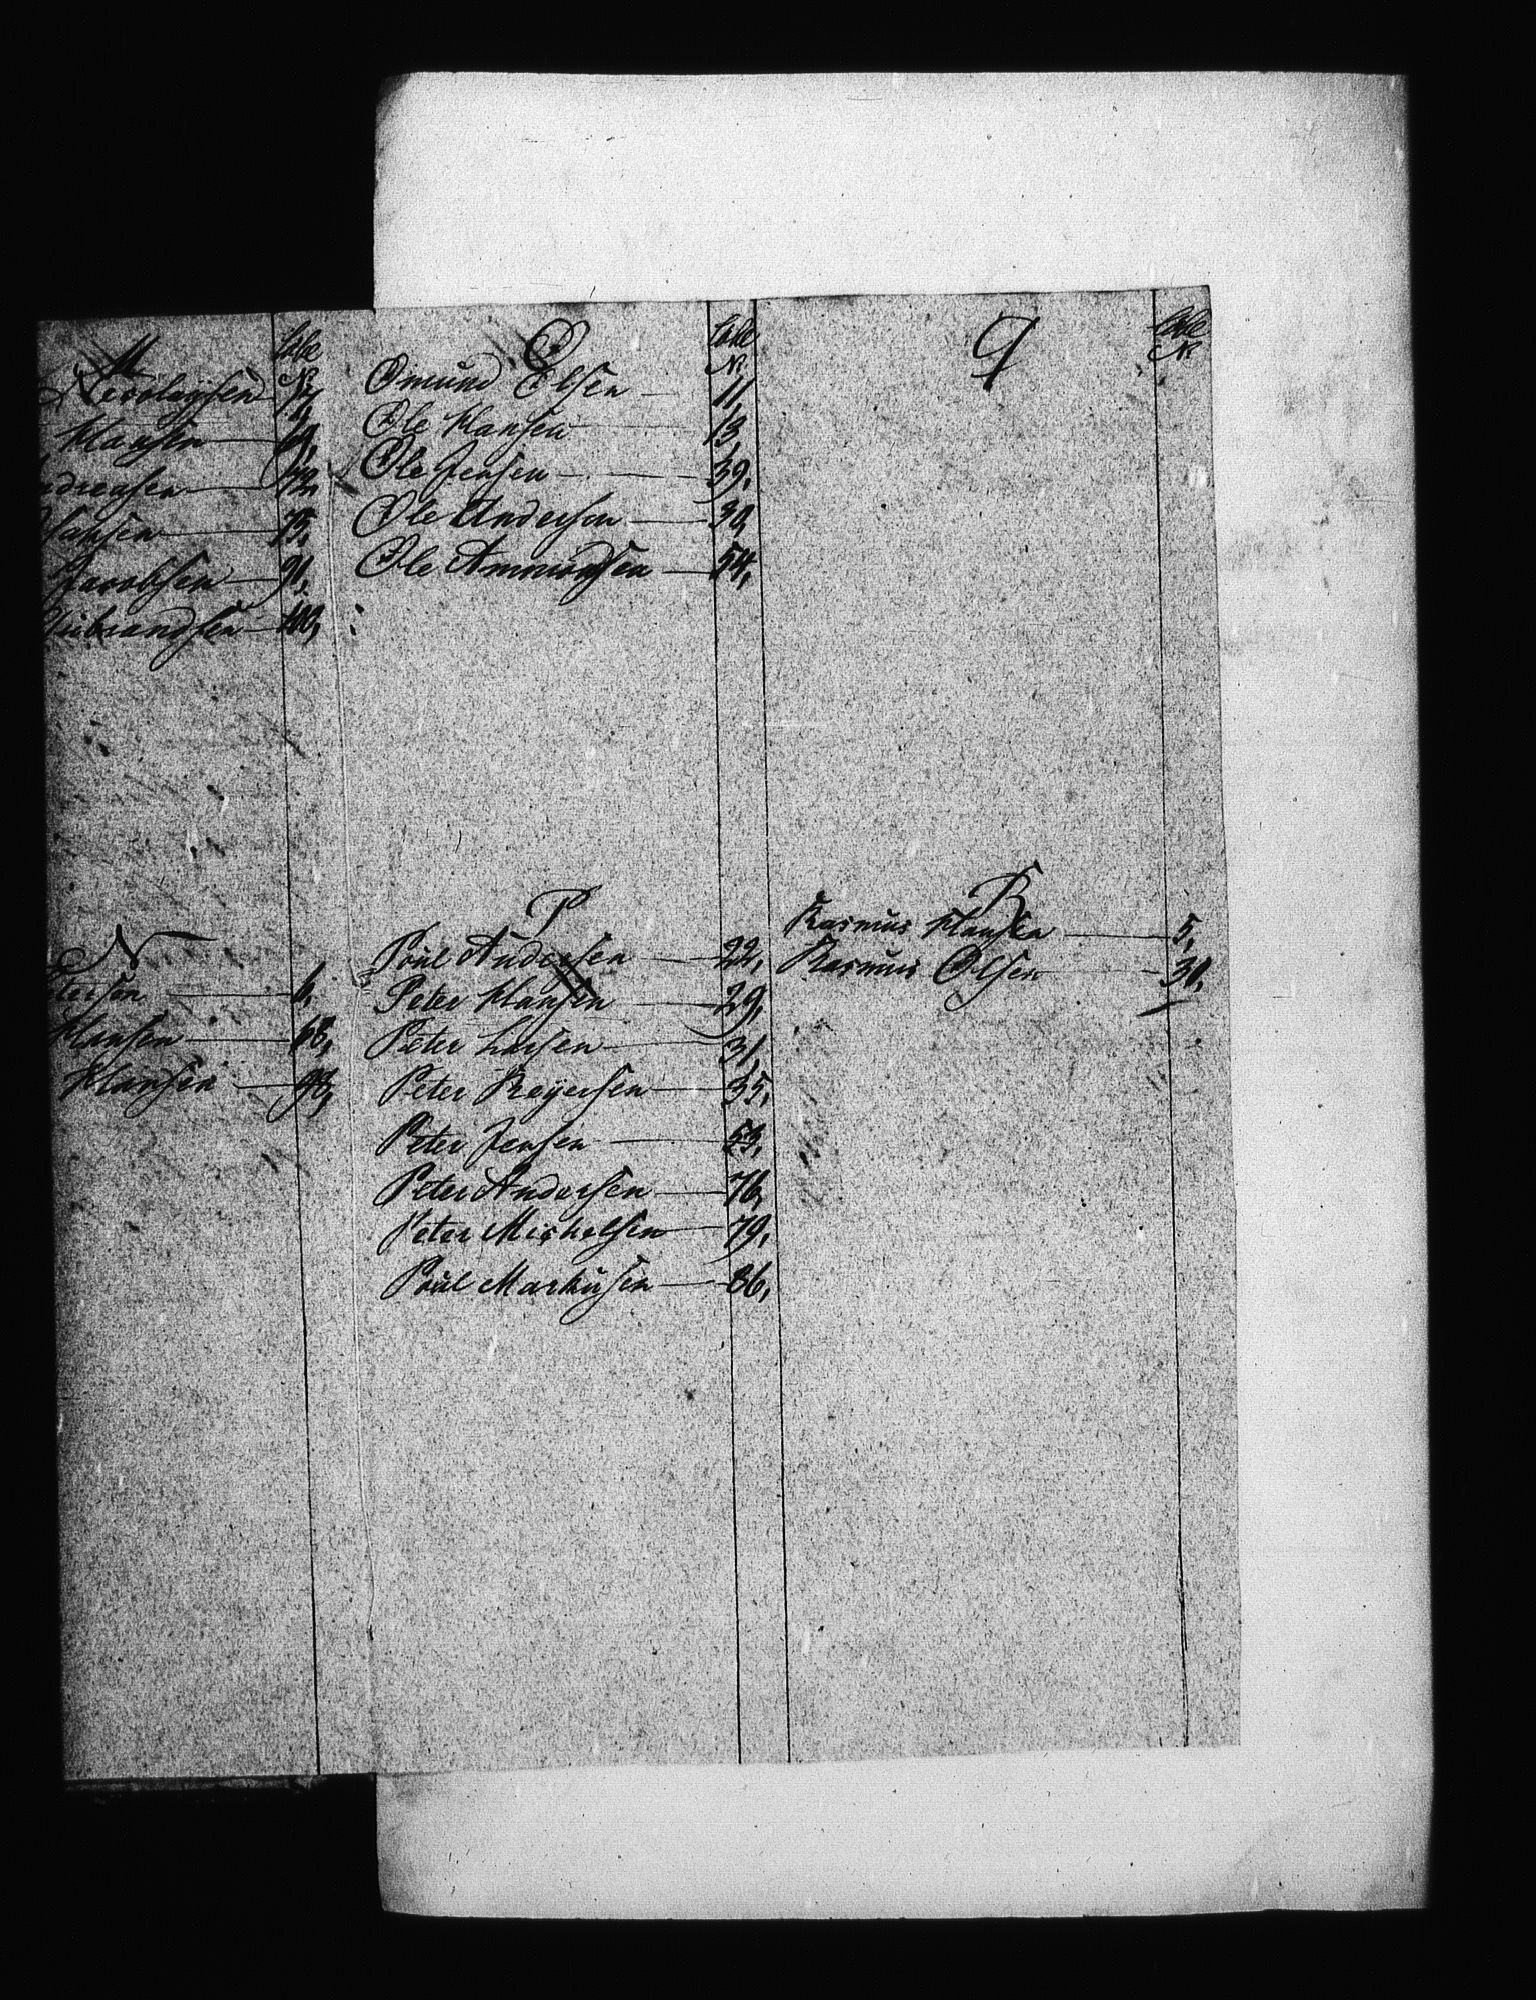 M
Nicolaysen
Hansen 69,
Andreasen 72
Hansen 75,
Jacobsen 91,
100,
N
Petersen 6,
Hansen 68,
Hansen 98,
O
Løbe No
Omund Olsen 11,
Ole Hansen 13,
Ole Jensen 39,
Ole Andersen 38,
Ole Ammundsen 54,
P
Poul Andersen 22,
Peter Hansen 29,
Peter Larsen 31,
Peter Reyersen 35,
Peter Jensen 53,
Peter Andersen 76,
Peter Michelsen 79,
Poul Markusen 86,
Q
Løbe No
R
Rasmus Hansen 5,
Rasmus Olsen 30,